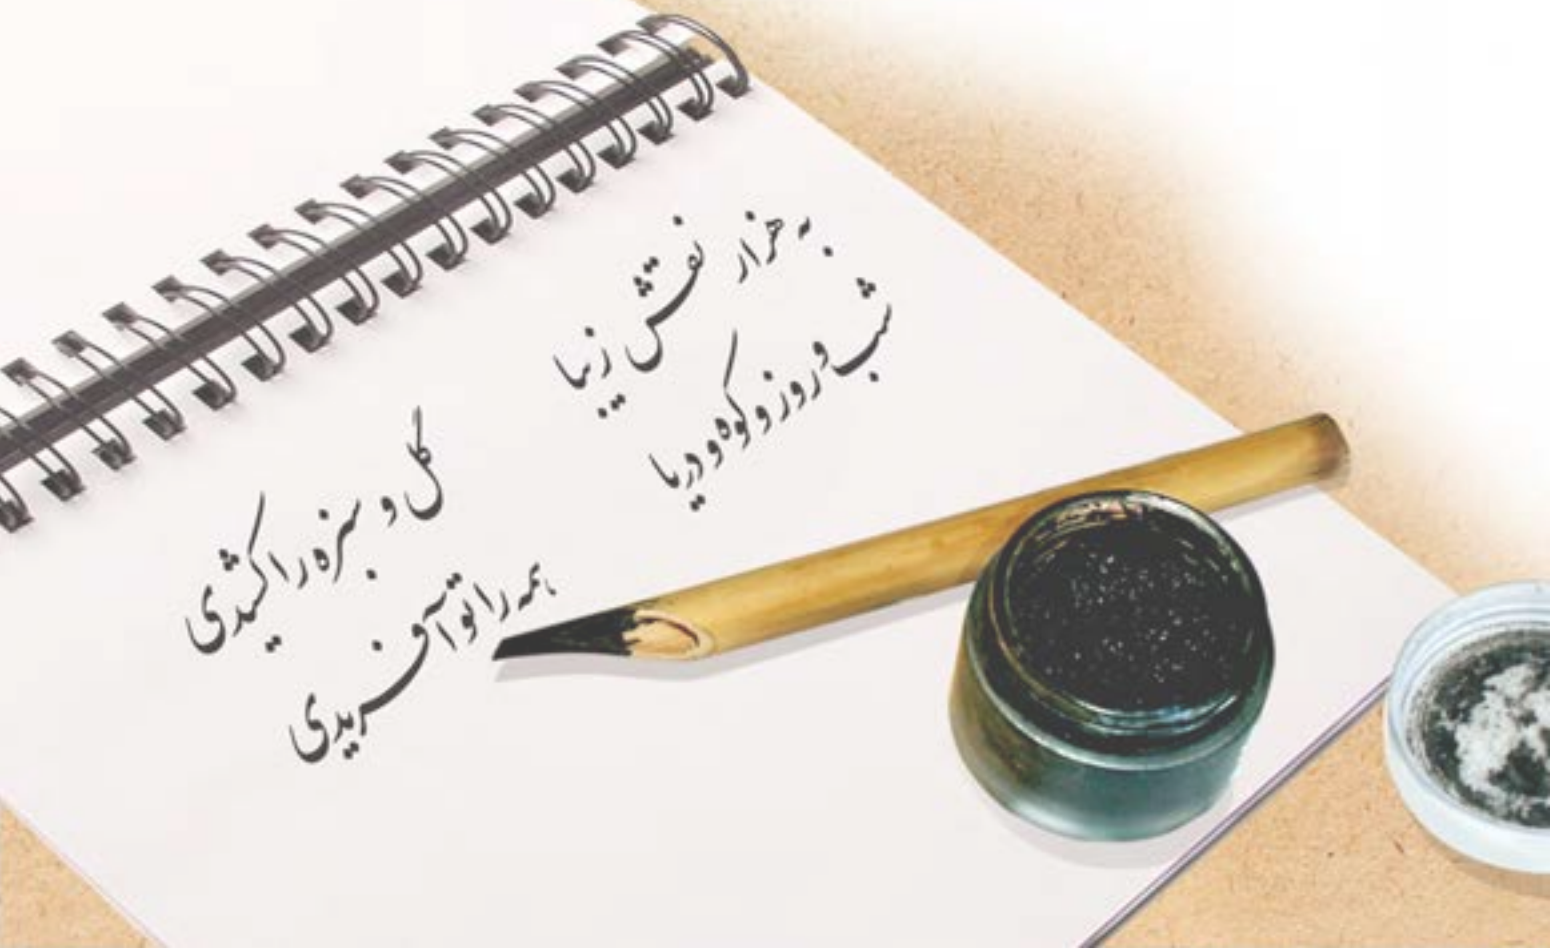 به هزار نقش زیبا گل و سبزه را کشیدی
شب و روز و کوه و دریا همه را تو آفریدی